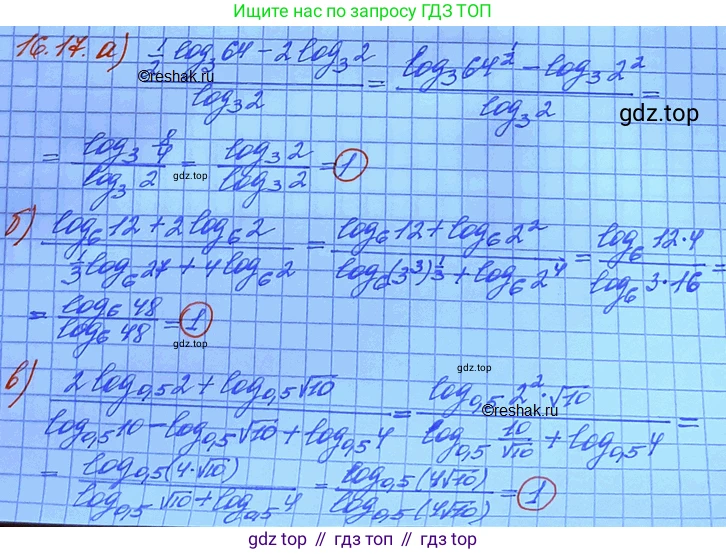 Ищите нас по запросу ГДЗ ТОП
16.17. а) (1/2 log₃64 − 2 log₃2)/(log₃2) = (log₃64^(1/2) − log₃2²)/(log₃2) =
©reshak.ru
gdz.top
= (log₃ 8/4)/(log₃ 2) = (log₃2)/(log₃2) = 1
gdz.top
б) (log₆12 + 2 log₆2)/(1/3 log₆27 + 4 log₆2) = (log₆12 + log₆2²)/(log₆(3³)^(1/3) + log₆2⁴) = (log₆12·4)/(log₆3·16) =
= (log₆48)/(log₆48) = 1
gdz.top
в) (2 log₀,₅2 + log₀,₅√10)/(log₀,₅10 − log₀,₅√10 + log₀,₅4) = (log₀,₅2²·√10)/(log₀,₅ 10/√10 + log₀,₅4) =
©reshak.ru
= (log₀,₅(4·√10))/(log₀,₅√10 + log₀,₅4) = (log₀,₅(4√10))/(log₀,₅(4√10)) = 1
gdz.top
gdz top // гдз топ // гдз.top